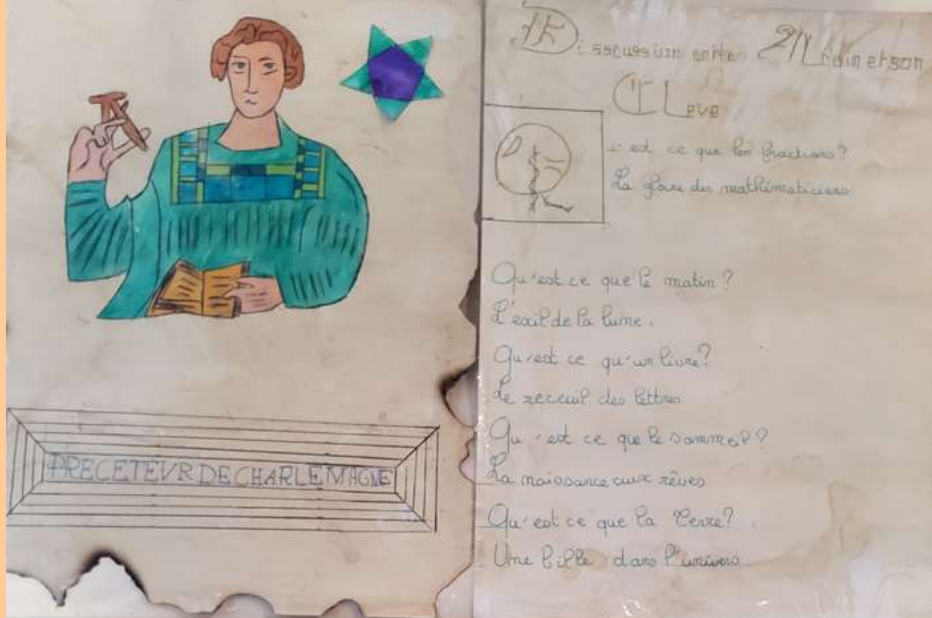 PRECETEUR DE CHARLEMAGNE
Discussion entre Alcuin et son
ELeve
c'est ce que les fractions?
La gloire des mathématiciens
Qu'est ce que le matin?
L'exil de la lune.
Qu'est ce qu'un livre?
Le receuil des lettres
Qu'est ce que le sommeil?
La naissance aux rêves
Qu'est ce que la Terre?
Une bille dans l'univers